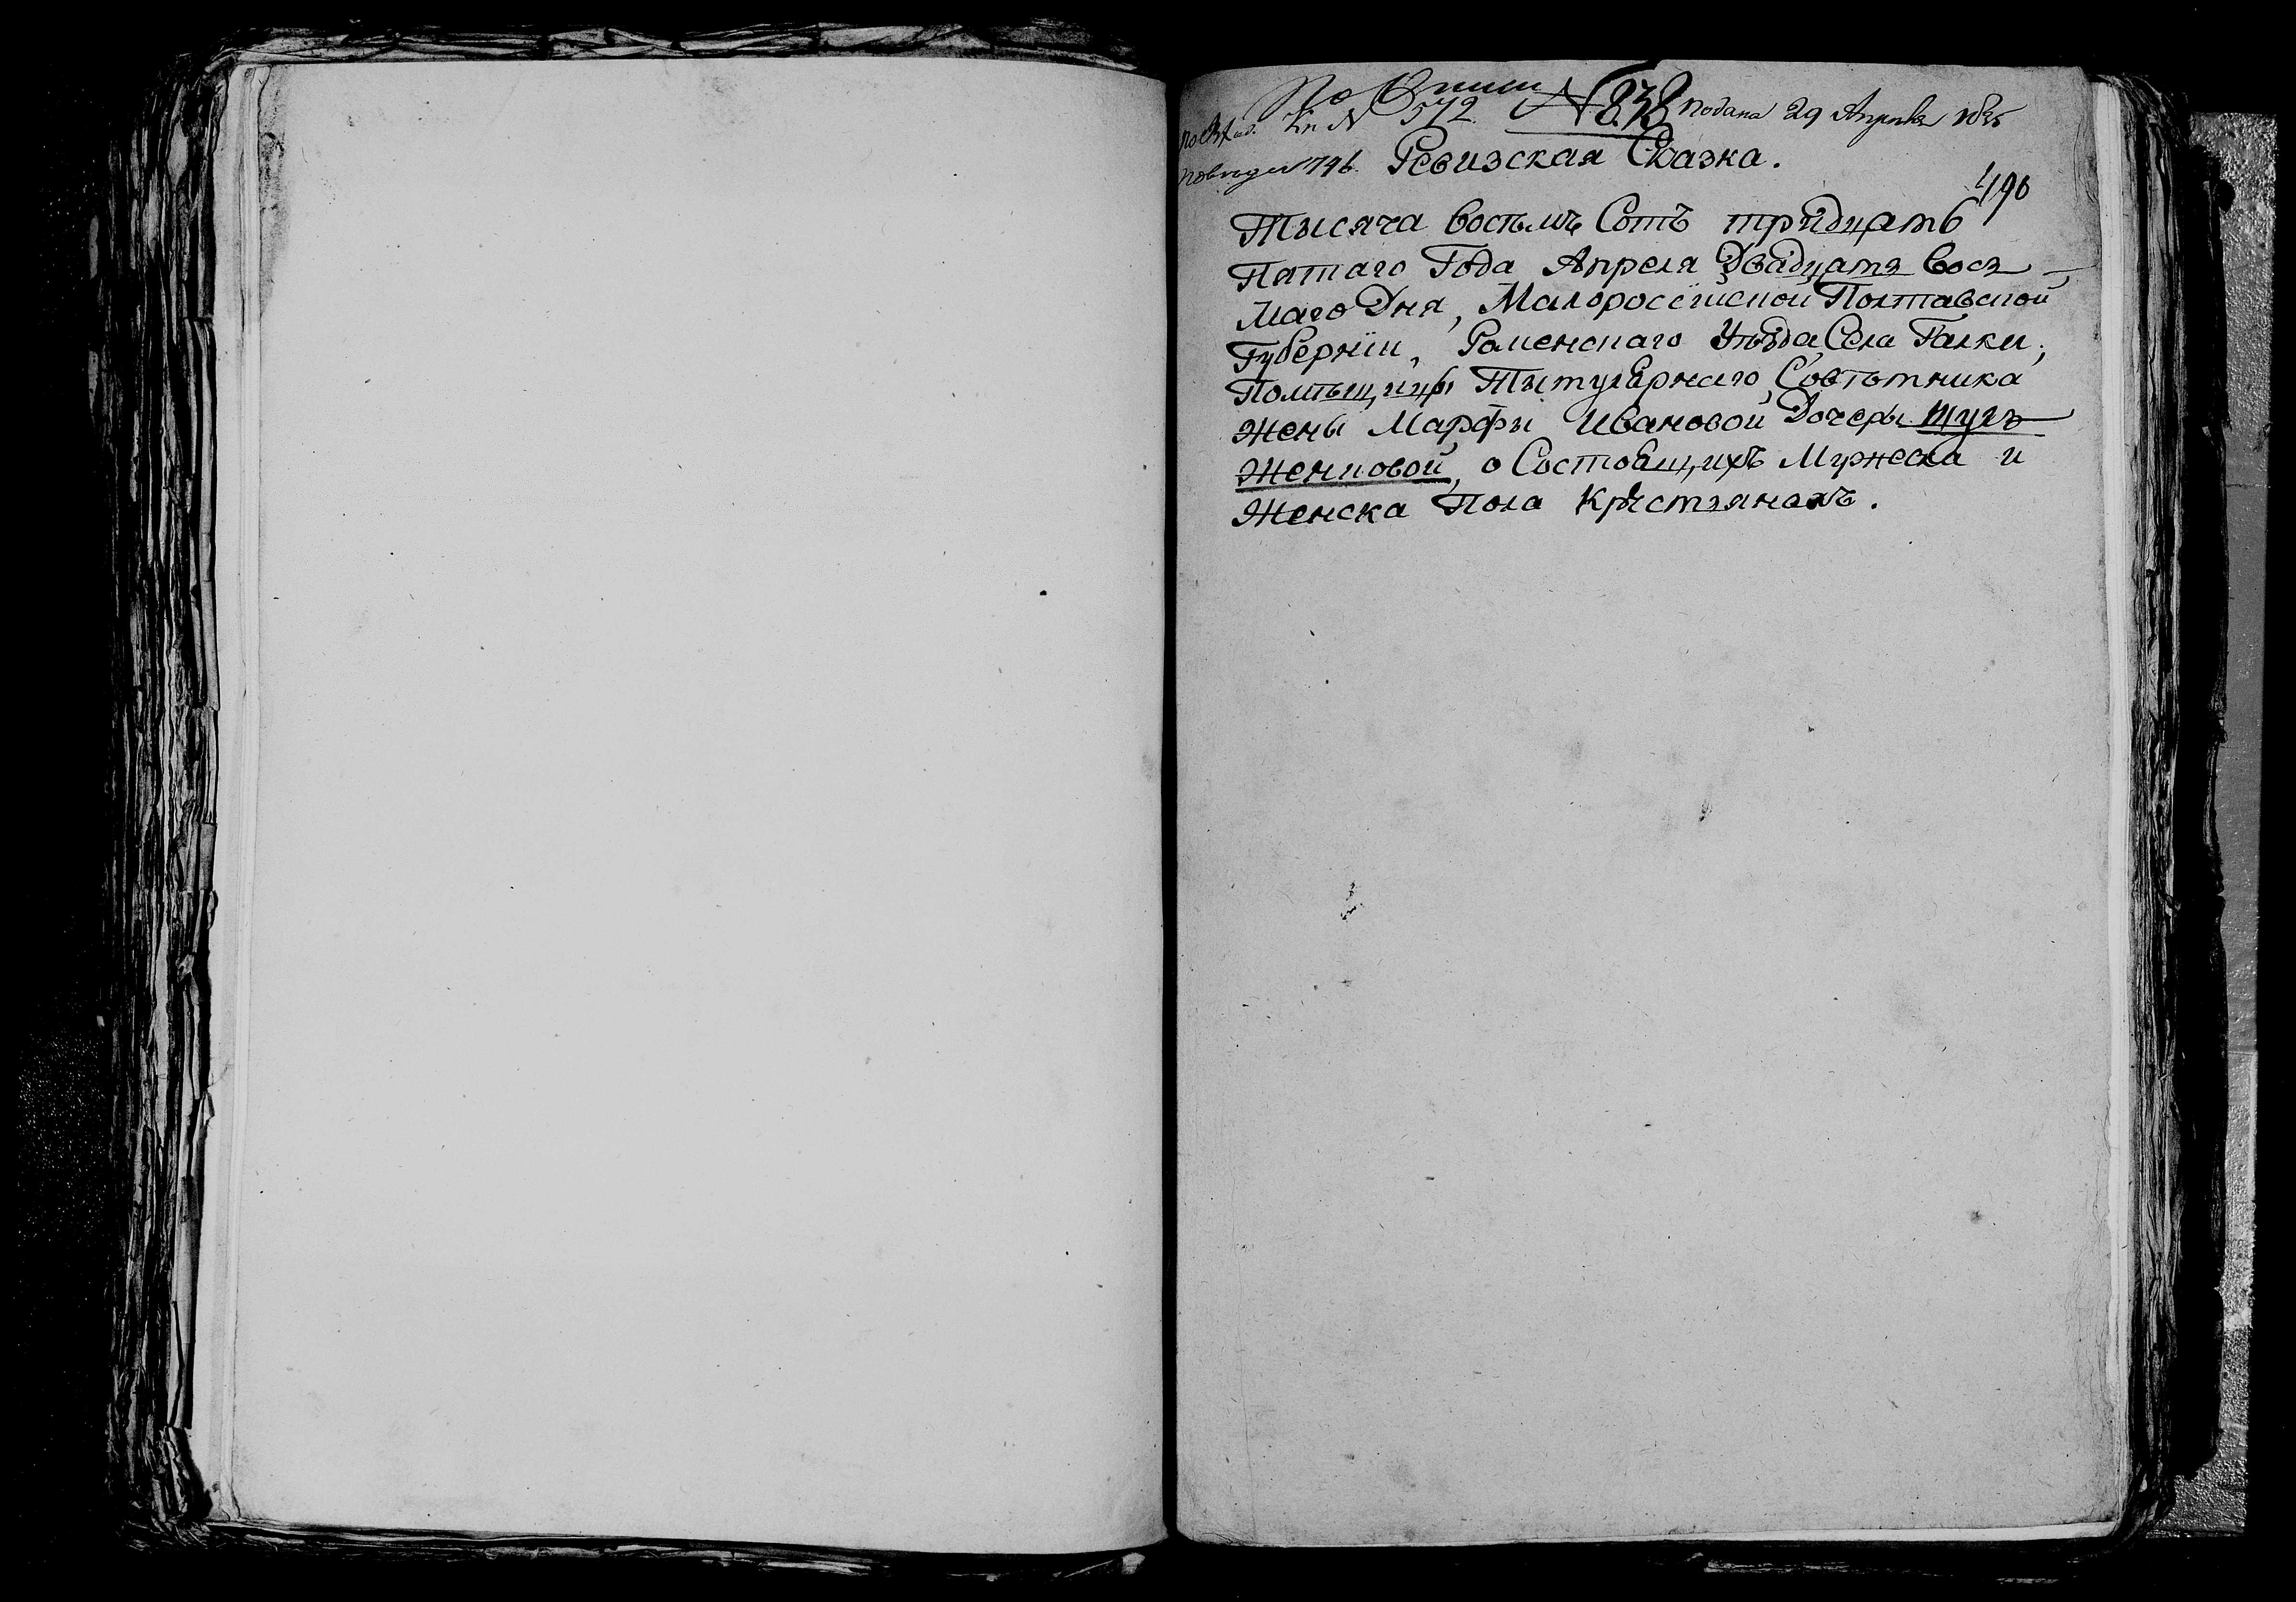 По Описи
Кн № 572. № 838 Подана 29 Апреля 1835
796. Ревизская Сказка.
490
Тысяча восемъ Сотъ тридцать
Пятаго Года Апреля Двадцать Воз-
маго Дня, Малоросейской Полтавской
Губернїи, Роменскаго Уѣзда Села Галки,
Помѣщицы Титулярнаго Совѣтника
Жены Марфы Ивановой Дочеры Шуль
Женковой, о Состоящихъ Мужеска и
Женска Пола Крестьянахъ.